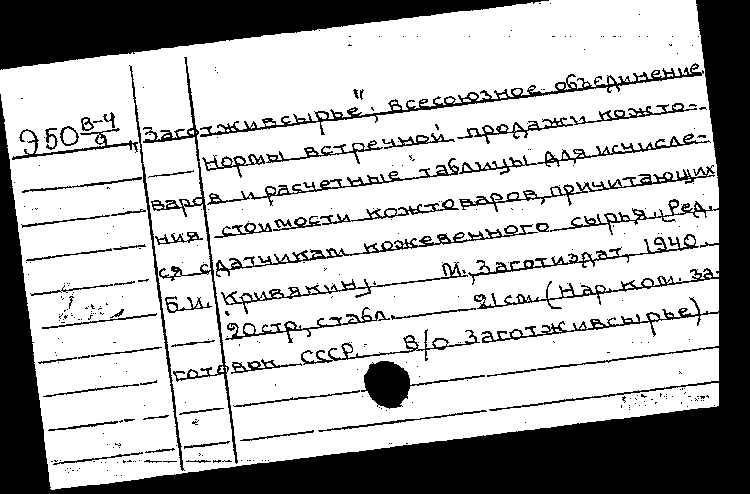 950 В-4/9 "Заготживсырье", всесоюзное объединение
Нормы встречной продажи кожто-
варов и расчетные таблицы для исчисле-
ния стоимости кожтоваров, причитающих
ся сдатчикам кожевенного сырья. Ред.
Б.И. Кривякин. М., Заготиздат, 1940.
20 стр., с табл. 21 см. (Нар. ком. за-
готовок СССР. В/О Заготживсырье).